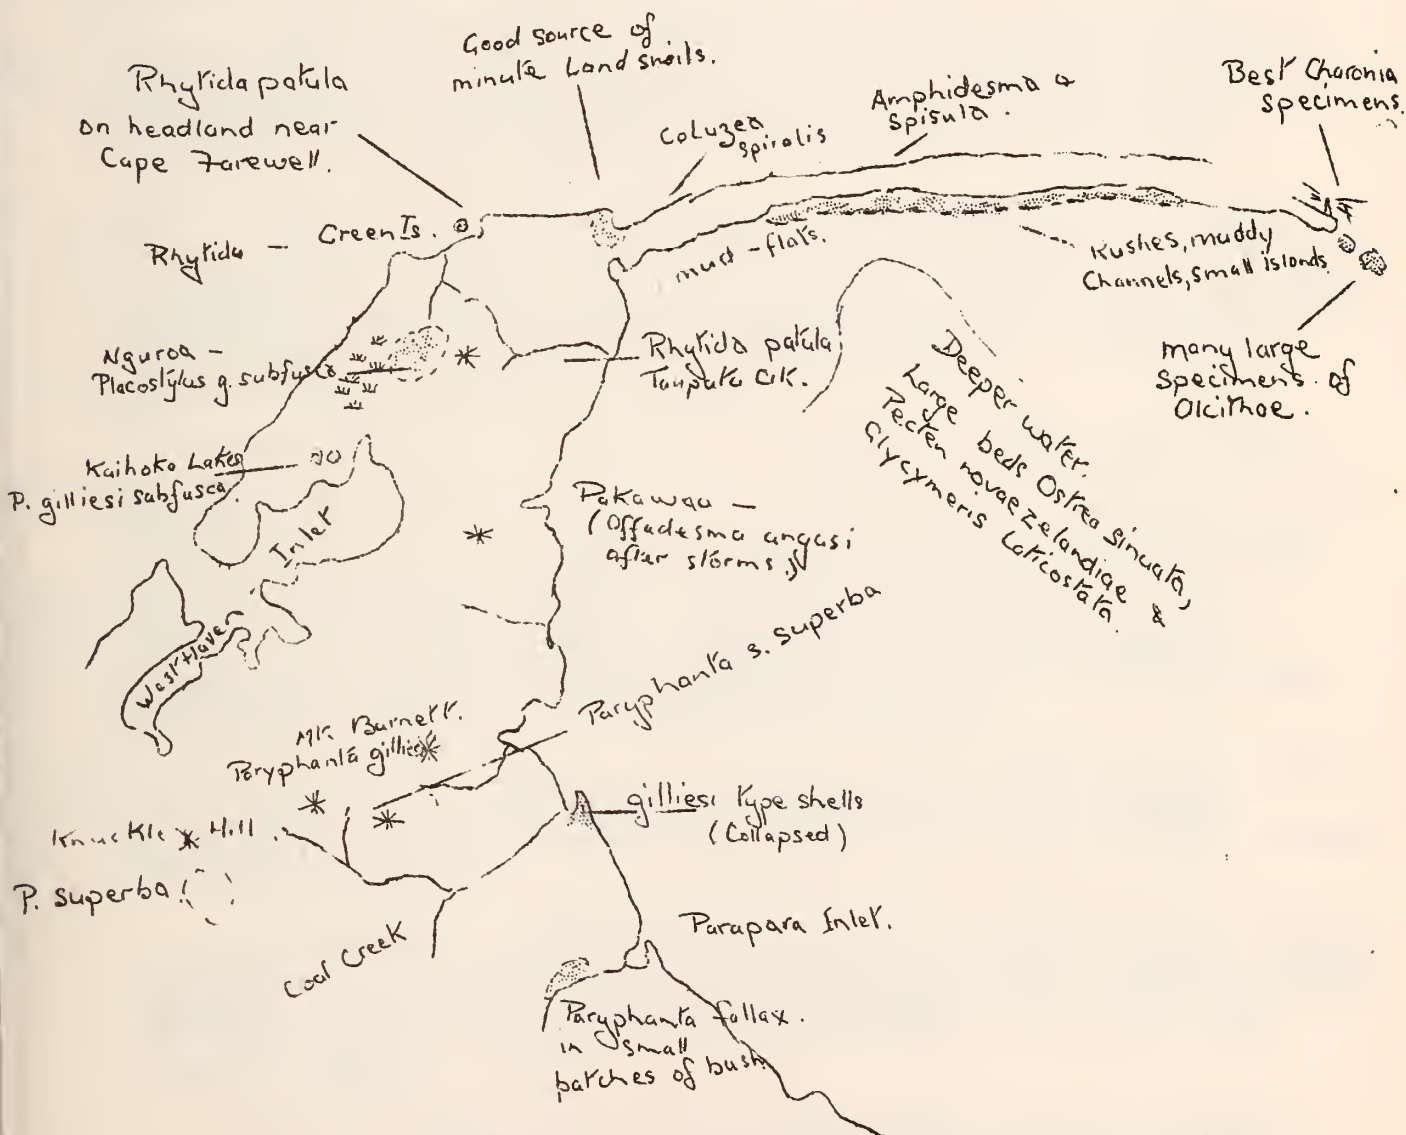 Good source of
minute Land snails.
Rhytida patula
on headland near
Cape Farewell.
Coluzea
spiralis
Amphidesma &
Spisula.
Best Charonia
Specimens.
Rhytida - Green Is.
mud-flats.
Rushes, muddy
Channels, small islands.
many large
specimens of
Alcithoe.
Nguroa -
Placostylus g. subfusca
Rhytida patula
Taupata Ck.
Deeper water.
Large beds Ostrea sinuata,
Pecten novaezelandiae &
Glycymeris laticostata.
Kaihoka Lakes
P. gilliesi subfusca.
Pakawau -
(Offadesma angasi
after storms.)
West Haven Inlet
Paryphanta s. superba
Mt. Burnett.
Paryphanta gilliesi
Knuckle Hill.
gilliesi type shells
(Collapsed)
P. superba
Coal Creek
Parapara Inlet.
Paryphanta fallax.
in small
patches of bush